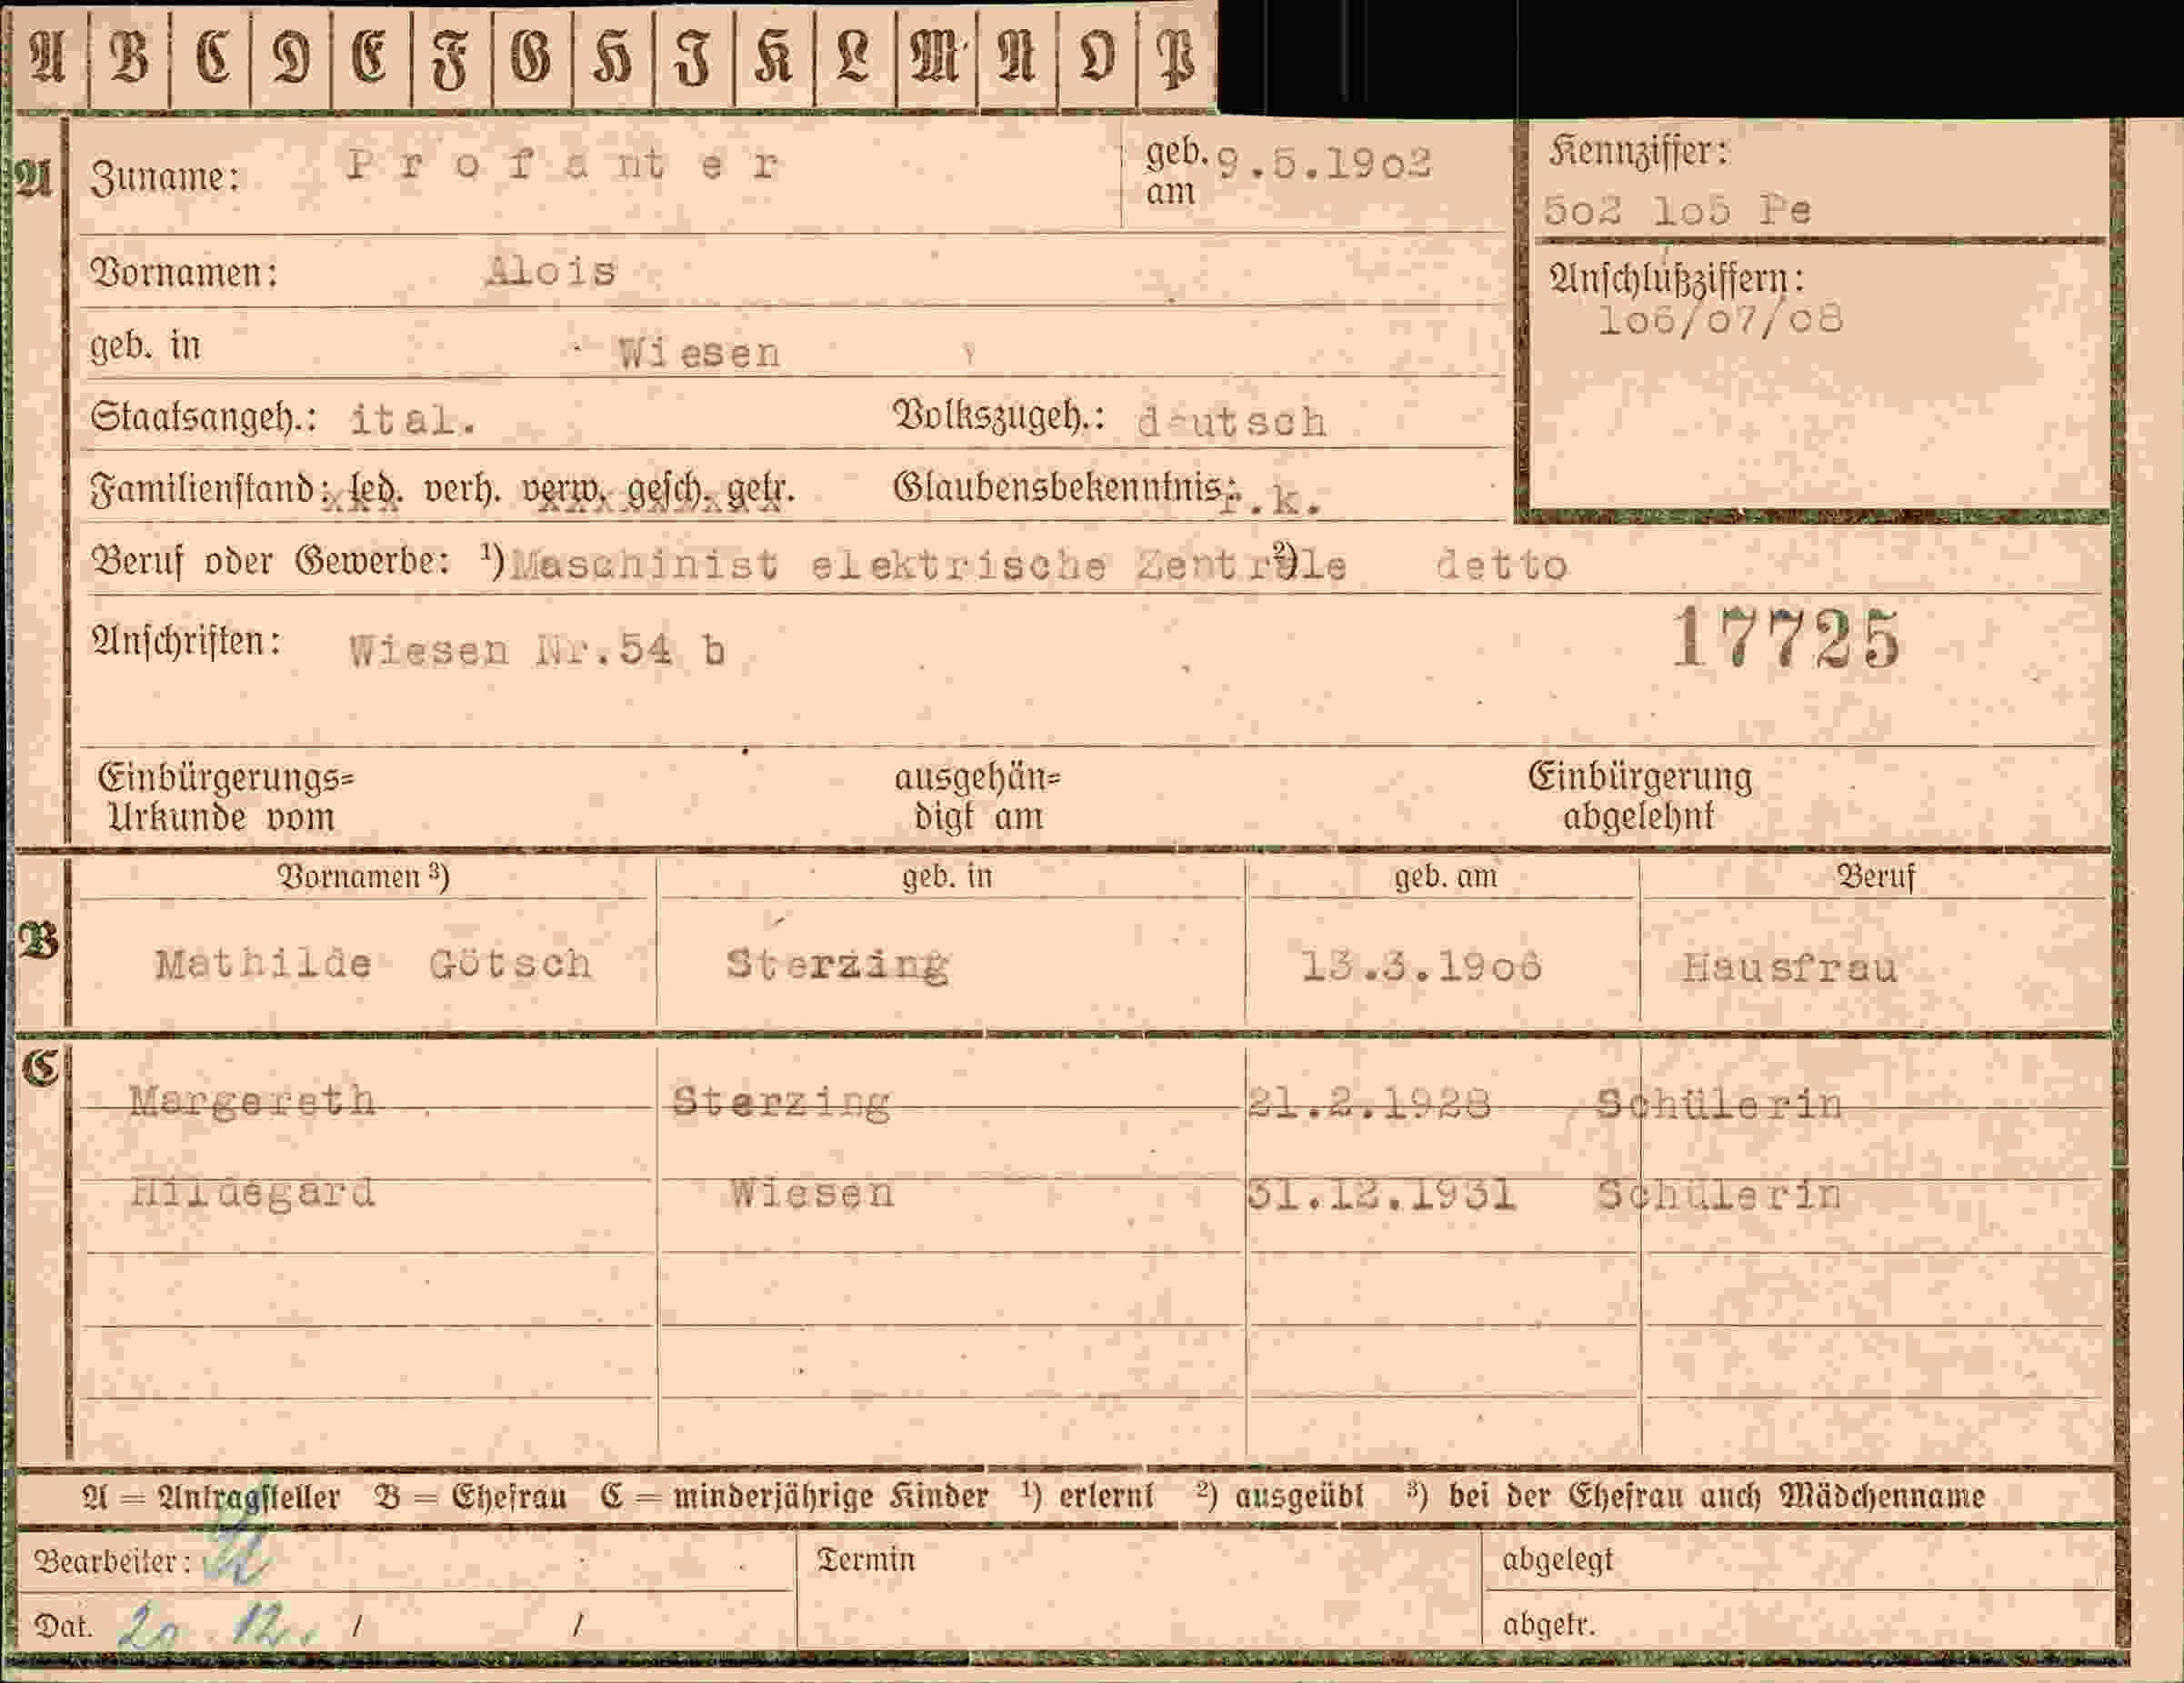 A B C D E F G H J K L M N O P
A Zuname: Profanter geb. am 9.5.1902 Kennziffer:
502 105 Pe
Vornamen: Alois Anschlußziffern:
106/07/08
geb. in Wiesen
Staatsangeh.: ital. Volkszugeh.: deutsch
Familienstand: led. verh. verw. gesch. getr. Glaubensbekenntnis: r.k.
Beruf oder Gewerbe: ¹) Maschinist elektrische Zentrale ²) detto
Anschriften: Wiesen Nr.54 b 17725
Einbürgerungs= ausgehän= Einbürgerung
Urkunde vom digt am abgelehnt
Vornamen ³) geb. in geb. am Beruf
B Mathilde Götsch Sterzing 13.3.1906 Hausfrau
C Margereth Sterzing 21.2.1928 Schülerin
Hildegard Wiesen 31.12.1931 Schülerin
A = Antragsteller B = Ehefrau C = minderjährige Kinder ¹) erlernt ²) ausgeübt ³) bei der Ehefrau auch Mädchenname
Bearbeiter: Termin abgelegt
Dat. 20.12. / / abgetr.